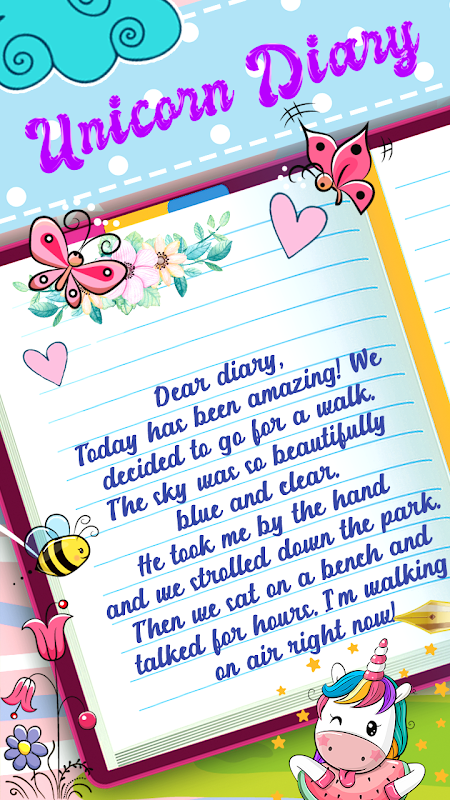 Unicorn Diary
Dear diary,
Today has been amazing! We
decided to go for a walk.
The sky was so beautifully
blue and clear.
He took me by the hand
and we strolled down the park.
Then we sat on a bench and
talked for hours. I'm walking
on air right now!